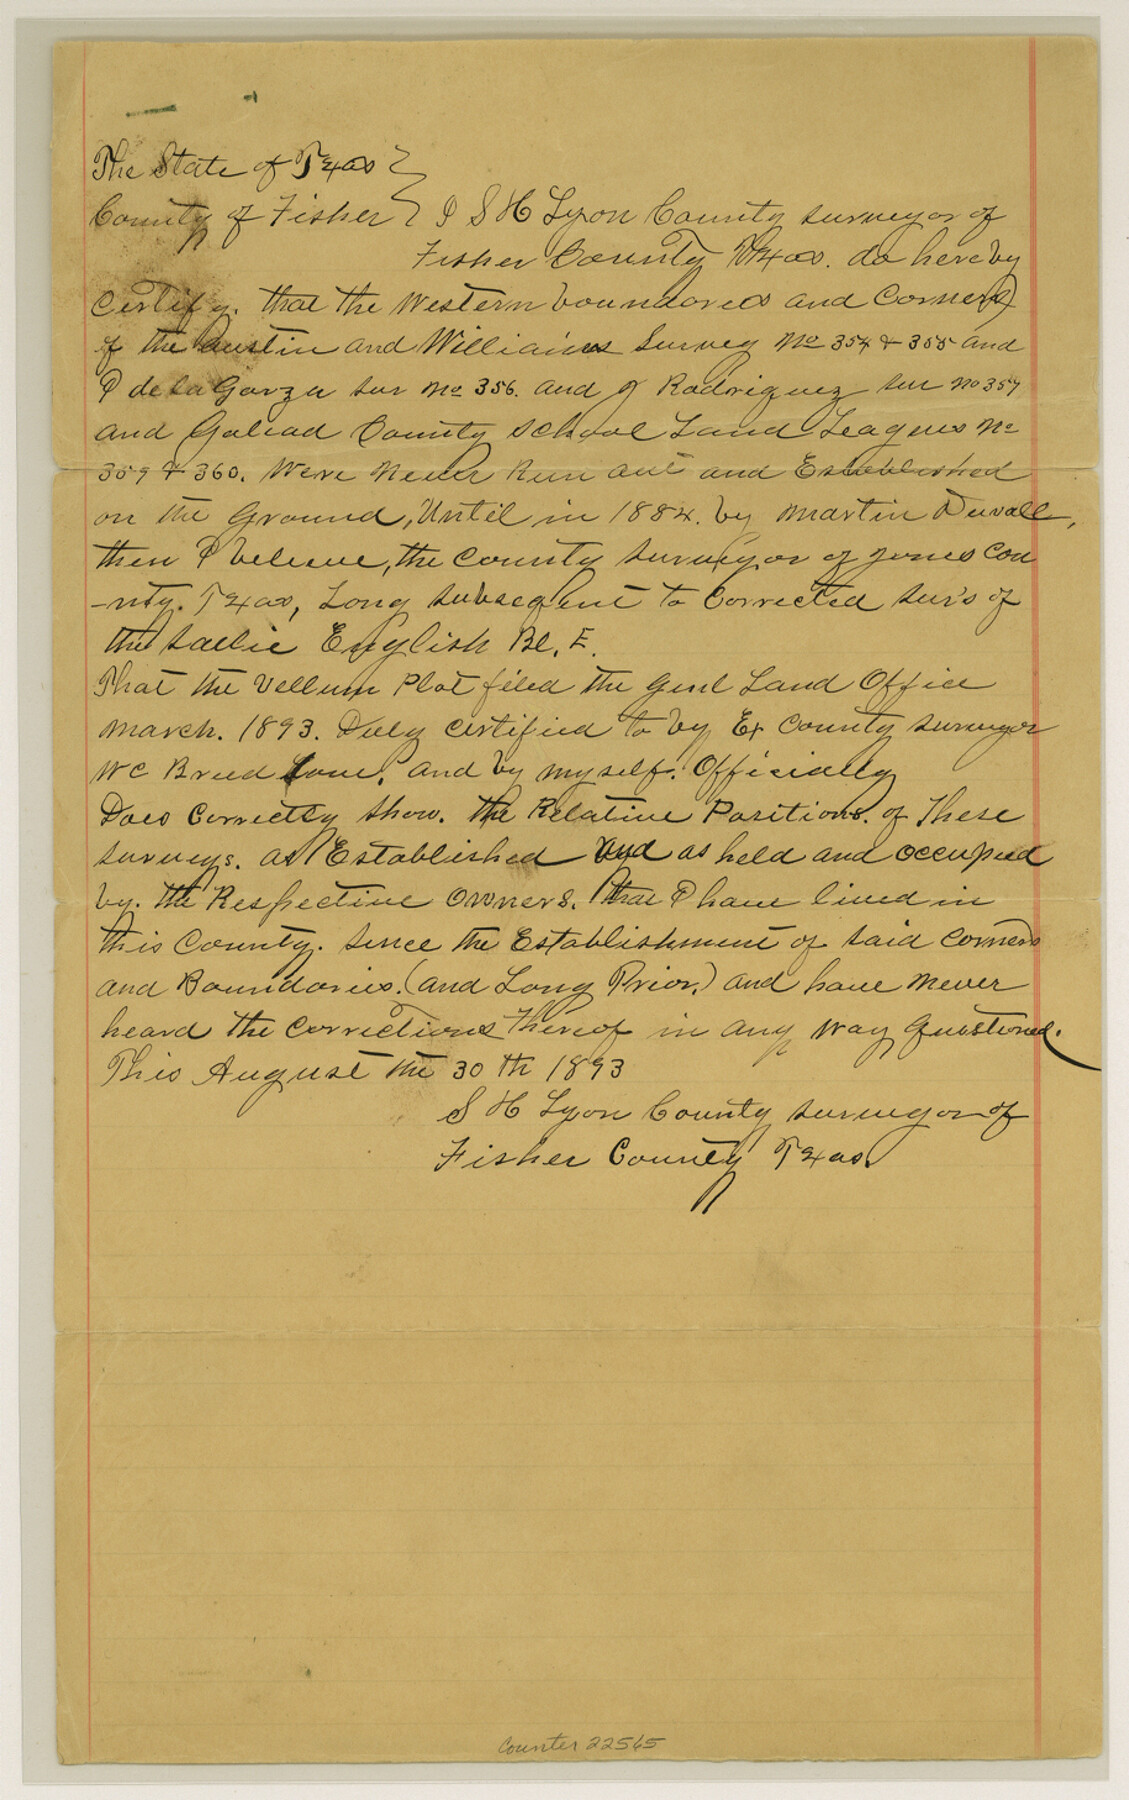 The State of Texas }
County of Fisher } I S H Lyon County surveyor of
Fisher County Texas. do hereby
Certify. that the Western boundares and Corners
of the Austin and Williams Survey No 354 & 355 and
P de La Garza sur No 356. and J Rodriguez sur No 357
and Goliad County School Land Leagues No
359 & 360. Were Never Run out and Established
on the Ground, Until in 1884. by Martin Duvall,
then I believe, the County surveyor of Jones Cou
-nty. Texas, Long subseqent to Corrected sur's of
the Sallie English Bl. E.
That the Vellum Plat filed the Genl Land Office
March. 1893. Duly Certified to by Ex County surveyor
W C Breed Love. and by myself. Officially
Does Correctly show. the Relative Positions. of These
surveys. as Established and as held and occupied
by. the Respective Owners. that I have lived in
this County. since the Establishment of said Corners
and Boundaries. (and Long Prior.) and have Never
heard the Corrections thereof in any way Questioned.
This August the 30 th 1893
S H Lyon County surveyor of
Fisher County Texas.
Counter 22565